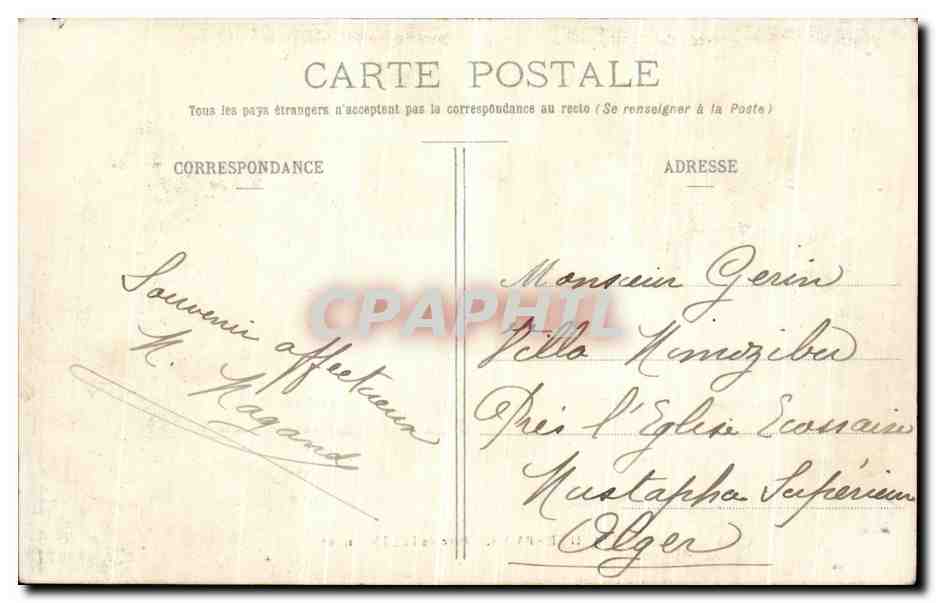 CARTE POSTALE
Tous les pays étrangers n'acceptent pas la correspondance au recto (Se renseigner à la Poste)
CORRESPONDANCE
ADRESSE
Souvenir affectueux
Monsieur Gerin
Villa
Près l'Eglise Ecossaise
Mustapha Supérieur
Alger
CPAPHIL